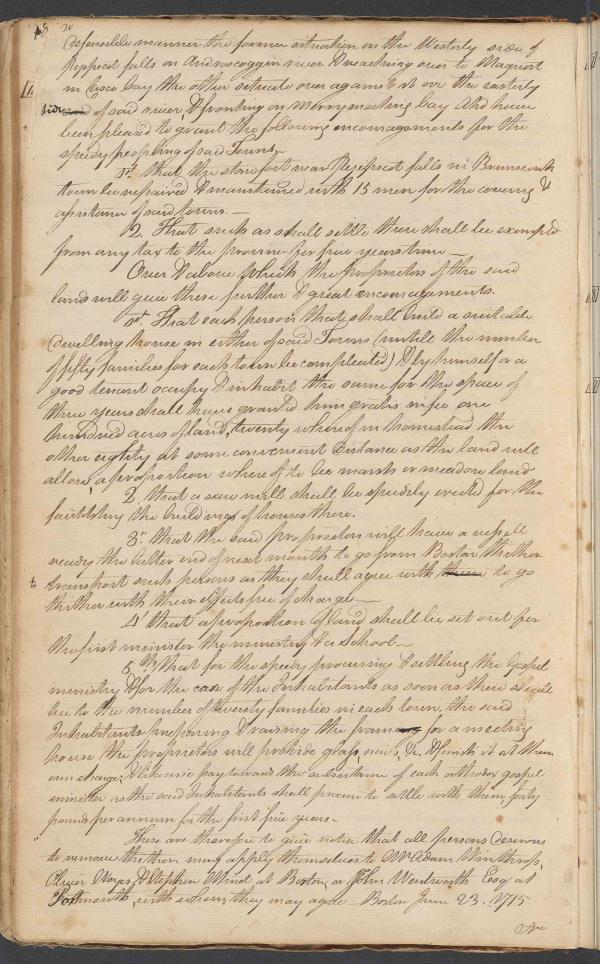 18 20
defensible manner the former situation on the Westerly side of
Pejipscot falls on Androscoggin river & reaching over to Maquoit
in Casco bay the other setuate over against it on the easterly
side of said river & fronting on Merrymeeting bay And have
been pleased to grant the following encouragements for the
speedy peopling of said Towns.
1st. that the stone fort near Pejipscot falls in Brunswick
town be repaired & maintained with 15 men for the covering &
assistance of said towns.—
2. That such as shall settle there shall be exempted
from any tax to the province for five years time —
Over & above which the proprietors of the said
lands will give these further & great encouragements.
1st. That each person that shall build a suitable
dwelling house in either of said Towns (untill the number
of fifty families for each town be compleated) & by himself or a
good tenant occupy & inhabit the same for the space of
three years shall have granted him gratis in fee one
hundred acres of land, twenty whereof in homestead the
other eighty at some convenient distance as the land will
allow, a proportion whereof to be marsh or meadow land
2. that a saw mill shall be speedily erected for the
facilitating the buildings of houses there.
3. that the said proprietors will have a vessell
ready the latter end of next month to go from Boston thither to
transport such persons as they shall agree with to go
thither with their effects free of charge —
4. that a proportion of land shall be set out for
the first minister the ministry & a School—
5thly that for the speedy procuring & settling the Gospel
ministry & for the ease of the Inhabitants as soon as there shall
be to the number of twenty families in each town, the said
Inhabitants preparing & raising the frame for a meeting
house the proprietors will provide glass, nails, &c. & finish it at their
own charge; & likewise pay towards the subsistance of each orthodox gospel
minister as the said Inhabitants shall procure to settle with them, forty
pounds per annum for the first five years.—
These are therefore to give notice that all persons desirous
to remove thither may apply themselves to Mr Adam Winthrop,
Oliver Noyes, & Stephen Minot at Boston, or John Wentworth Esqr at
Portsmouth, with whom they may agree — Boston June 23. 1715